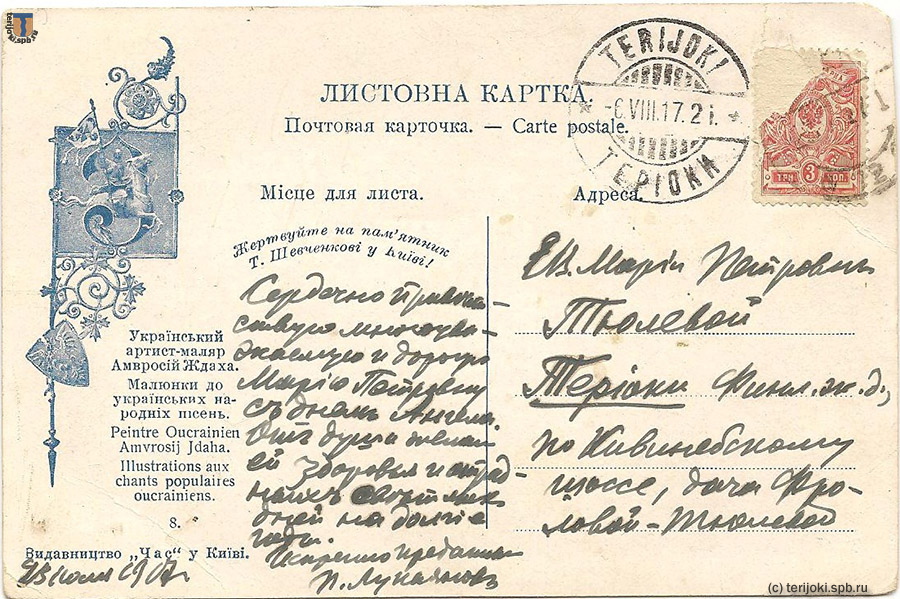 terijoki.spb.ru
TERIJOKI
-6.VIII.17. 2 i.
ТЕРІОКИ
ЛИСТОВНА КАРТКА.
Почтовая карточка. — Carte postale.
Місце для листа.
Адреса.
ТРИ 3 КОП.
Жертвуйте на пам'ятник
Т. Шевченкові у Київі!
Сердечно привѣт-
ствую многоува-
жаемую и дорогую
Марію Петровну
съ днемъ Ангела.
Отъ души желаю
ей здоровья и отрад-
ныхъ свѣтлыхъ
дней на долгіе
годы.
Искренно преданный
П. Лукьяновъ
Український
артист-маляр
Амвросій Ждаха.
Малюнки до
українських на-
родніх пісень.
Peintre Oucrainien
Amvrosij Jdaha.
Illustrations aux
chants populaires
oucrainiens.
8.
Видавництво „Час" у Київі.
июля 1917 г.
Ея В. Маріи Петровнѣ
Тюлевой
Теріоки Финл. ж. д.,
по Кивинебскому
шоссе, дача Фро-
ловой-Тюлевой
(c) terijoki.spb.ru